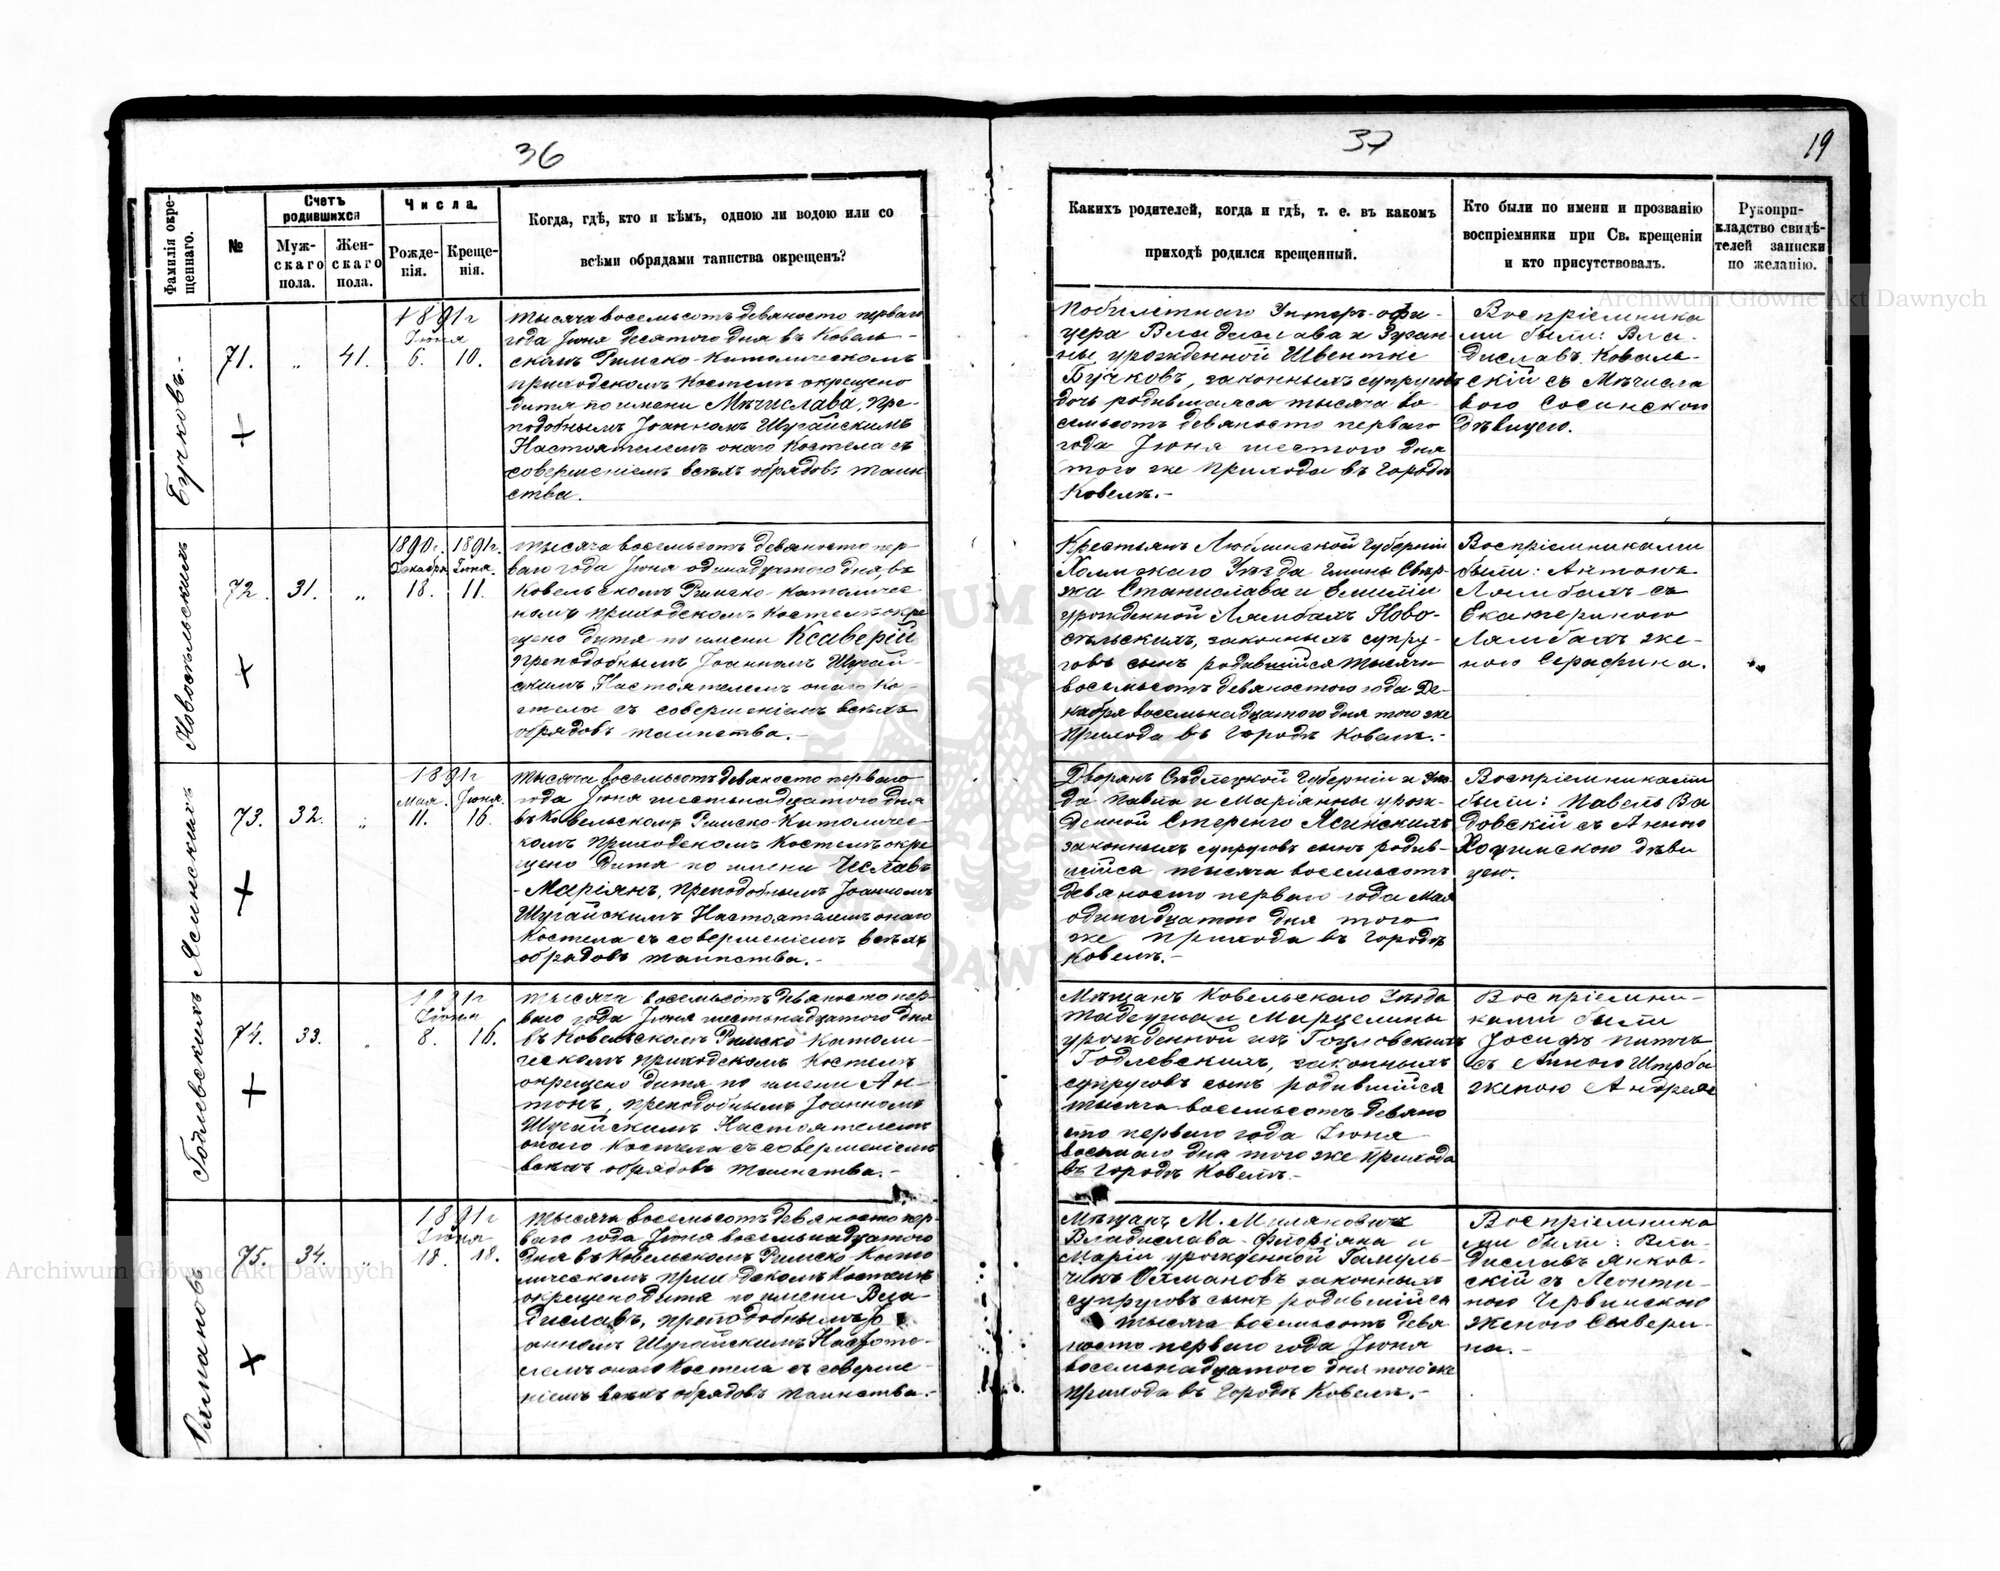 36
Фамилія окре-
щеннаго.
№
Счетъ
родившихся
Муж-
скаго
пола.
Жен-
скаго
пола.
Числа.
Рожде-
нія.
Креще-
нія.
Когда, гдѣ, кто и кѣмъ, одною ли водою или со
всѣми обрядами таинства окрещенъ?
Бучковъ.
71.
„
41.
1891 г
Іюня
6.
10.
Тысяча восемьсотъ девяносто перваго
года Іюня десятого дня въ Ковель-
скомъ Римско-Католическомъ
приходскомъ Костелѣ окрещено
дитя по имени Мѣчислава, пре-
подобнымъ Іоанномъ Шугайскимъ
Настоятелемъ онаго Костела съ
совершеніемъ всѣхъ обрядовъ таин
ства.
Новосѣльскихъ
72.
31.
„
1890 г.
Декабря
18.
1891 г.
Іюня.
11.
Тысяча восемьсотъ девяносто пер
ваго года Іюня одинадцатого дня, въ
Ковельскомъ Римско-Католичес
комъ приходскомъ Костелѣ окре
щено дитя по имени Ксаверій
преподобнымъ Іоанномъ Шугай-
скимъ Настоятелемъ онаго Ко-
стела съ совершеніемъ всѣхъ
обрядовъ таинства.-
Ясинскихъ
73.
32.
„
1891 г
Мая.
11.
Іюня.
16.
Тысяча восемьсотъ девяносто перваго
года Іюня шестьнадцатого дня
въ Ковельскомъ Римско-Католичес-
комъ приходскомъ Костелѣ окре
щено дитя по имени Чеславъ
-Маріянъ, преподобнымъ Іоанномъ
Шугайскимъ Настоятелемъ онаго
Костела съ совершеніемъ всѣхъ
обрядовъ таинства.-
Годлевскихъ
74.
33.
„
1891 г
Іюня
8.
16.
Тысяча восемьсотъ девяносто пер-
ваго года Іюня шестьнадцатого дня
въ Ковельскомъ Римско Католи-
ческомъ приходскомъ Костелѣ
окрещено дитя по имени Ан-
тонъ, преподобнымъ Іоанномъ
Шугайскимъ Настоятелемъ
онаго Костела съ совершеніемъ
всѣхъ обрядовъ таинства.-
75.
34.
„
1891 г
Іюня
18.
18.
Тысяча восемьсотъ девяносто пер-
ваго года Іюня восемьнадцатого
дня въ Ковельскомъ Римско-Като
лическомъ приходскомъ Костелѣ
окрещено дитя по имени Вла-
диславъ, преподобнымъ Іо
анномъ Шугайскимъ Настояте-
лемъ онаго Костела съ соверше-
ніемъ всѣхъ обрядовъ таинства.-
37
19
Какихъ родителей, когда и гдѣ, т. е. въ какомъ
приходѣ родился крещенный.
Кто были по имени и прозванію
воспріемники при Св. крещеніи
и кто присутствовалъ.
Рукопри-
кладство свидѣ-
телей записки
по желанію.
Побилетнаго Унтеръ-офи-
цера Владислава и Зузан-
ны урожденной Швентке
Бучковъ, законныхъ супруговъ
дочь родившаяся тысяча во-
семьсотъ девяносто перваго
года Іюня шестого дня
того же прихода въ городѣ
Ковелѣ.-
Воспріемника
ми были: Вла-
диславъ Коваль-
скій съ Мѣчисла
вою Сосинскою
дѣвицею.
Крестьянъ Люблинской Губерніи
Холмскаго Уѣзда Гмины Свер-
жа Станислава и Емиліи
урожденной Лямбахъ Ново-
сѣльскихъ, законныхъ супру-
говъ сынъ родившійся тысяча
восемьсотъ девяностого года Де-
кабря восемьнадцатого дня того же
прихода въ городѣ Ковелѣ.-
Воспріемниками
были: Антонъ
Лямбахъ съ
Екатериною
Лямбахъ же-
ною Серафина.
Дворянъ Сѣдлецкой Губерніи и Уѣз
да Павла и Маріанны урож-
денной Стеренго Ясинскихъ
законныхъ супруговъ сынъ родив-
шійся тысяча восемьсотъ
девяносто перваго года Мая
одинадцатого дня того
же прихода въ городѣ
Ковелѣ.-
Воспріемниками
были: Павелъ Ва
довскій съ Анною
дѣви
цею.
Мѣщанъ Ковельскаго Уѣзда
Тадеуша и Марцелины
урожденной
Годлевскихъ, законныхъ
супруговъ сынъ родившійся
тысяча восемьсотъ девяно
сто перваго года Іюня
восьмаго дня того же прихода
въ городѣ Ковелѣ.-
Воспріемни-
ками были
Іосифъ
съ Анною Штрба
женою Андрея
Мѣщанъ М. Миляновичъ
Владислава-Флоріяна и
Маріи урожденной Гамуль-
чикъ законныхъ
супруговъ сынъ родившійся
тысяча восемьсотъ девя
носто перваго года Іюня
восемьнадцатого дня того же
прихода въ городѣ Ковелѣ.-
Воспріемника
ми были: Вла-
диславъ Янков-
скій съ Леонти-
ною Червинскою
женою Севери-
на.-
Archiwum Główne Akt Dawnych
Archiwum Główne Akt Dawnych